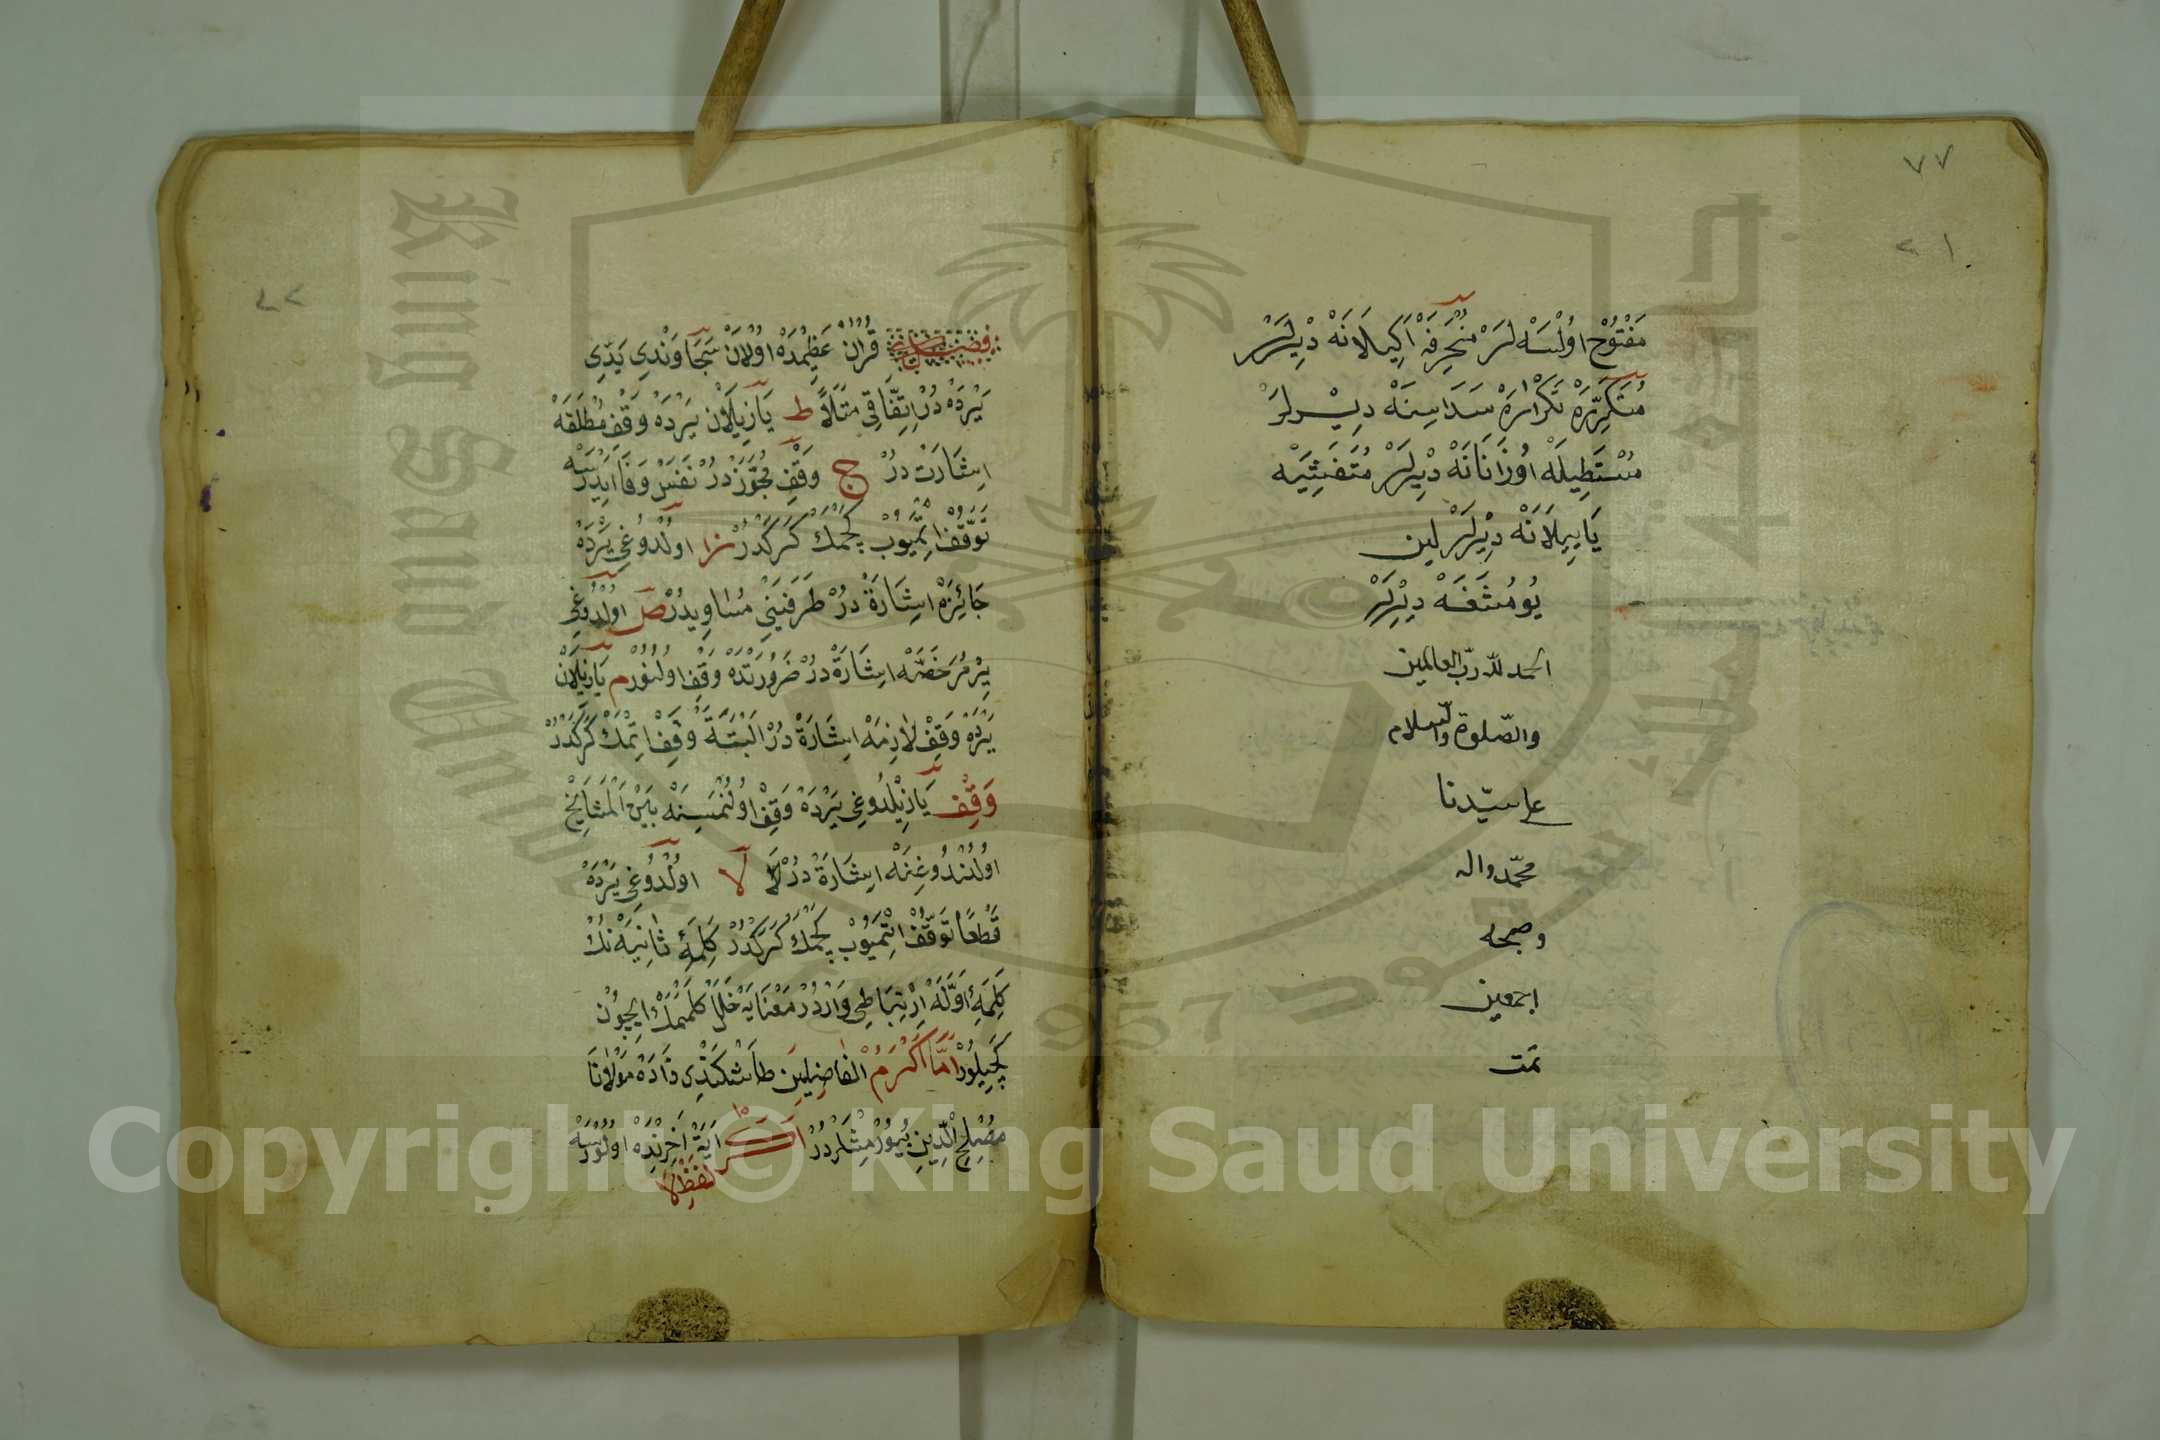 ٧٧
٢١
مَفْتُوحْ اوُلْسَه لَرْ مُنْحَرِفَه اَكِيلَانَه دِيرْلَرْ
مُتَكَرِّرَه تَكْرَارَه سَدَاسِنَه دِيرْلَرْ
مُسْتَطِيلَه اوُزَانَانَه دِيرْلَرْ مُتَفَشِّيَه
يَايِيلَانَه دِيرْلَرْ لين
يُومُشَغَه دِيرْلَرْ
الحمد لله رب العالمين
والصّلوة والسّلام
على سيّدنا
محمّد واله
وصحبه
اجمعين
تمت
٧٢
قُرْانْ عَظِيمْدَه اوُلَانْ سَجَاوَنْدِى يَدِّى
يَرْدَه دُرْ اِتِّفَاقِى مَثَلًا ط يَازِيلَانْ يَرْدَه وَقْفِ مُطْلَقَه
اِشَارَتْ دُرْ ج وَقْفِ مُجَوَّزْ دُرْ نَفَسْ وَفَا اَيدَرْسَه
تَوَقُّفْ اِتْمَيُوبْ كَچْمَكْ كَرَكْدُرْ ز اولْدُوغِى يَرْدَه
جَائِزَه اِشَارَةْ دُرْ طَرَفَيْنِى مُسَاوِيدُرْ ص اوُلْدُوغِى
يَرْ مُرَخَّصَه اِشَارَةْ دُرْ ضَرُورَتْدَه وَقْفْ اوُلُنُورْ م يَازِيلَانْ
يَرْدَه وَقْفْ لَازِمَه اِشَارَةْ دُرْ اَلْبَتَّه وَقْفْ اِتْمَكْ كَرَكْدُرْ
وَقْفْ يَازِيلْدُوغِى يَرْدَه وَقْفْ اوُلُنْمَسِنَه بَيْنَ الْمَشَايِخْ
اوُلُنْدُوغِنَه اِشَارَةْ دُرْ لَا لا اوُلْدُوغِى يَرْدَه
قَطْعًا تَوَقُّفْ اِتْمَيُوبْ كَچْمَكْ كَرَكْدُرْ كَلِمَۀِ ثَانِيَه نُكْ
كَلِمَۀِ اَوَّلَه اِرْتِبَاطِى وَارْدُرْ مَعْنَايَه خَلَلْ كَلْمَمَكْ اِيچُونْ
كَچِيلُورْ اَمَّا اَكْرَمُ الْفَاضِلِينْ طَاشْكَنْدِى زَادَه مَوْلَانَا
مُصْلِحُ الدِّينْ بُيُورْمِشْلَرْدُرْ اَكَرْ اَيَةْ اَخِرِنْدَه اوُلُورْسَه
لَفْظِ لَا